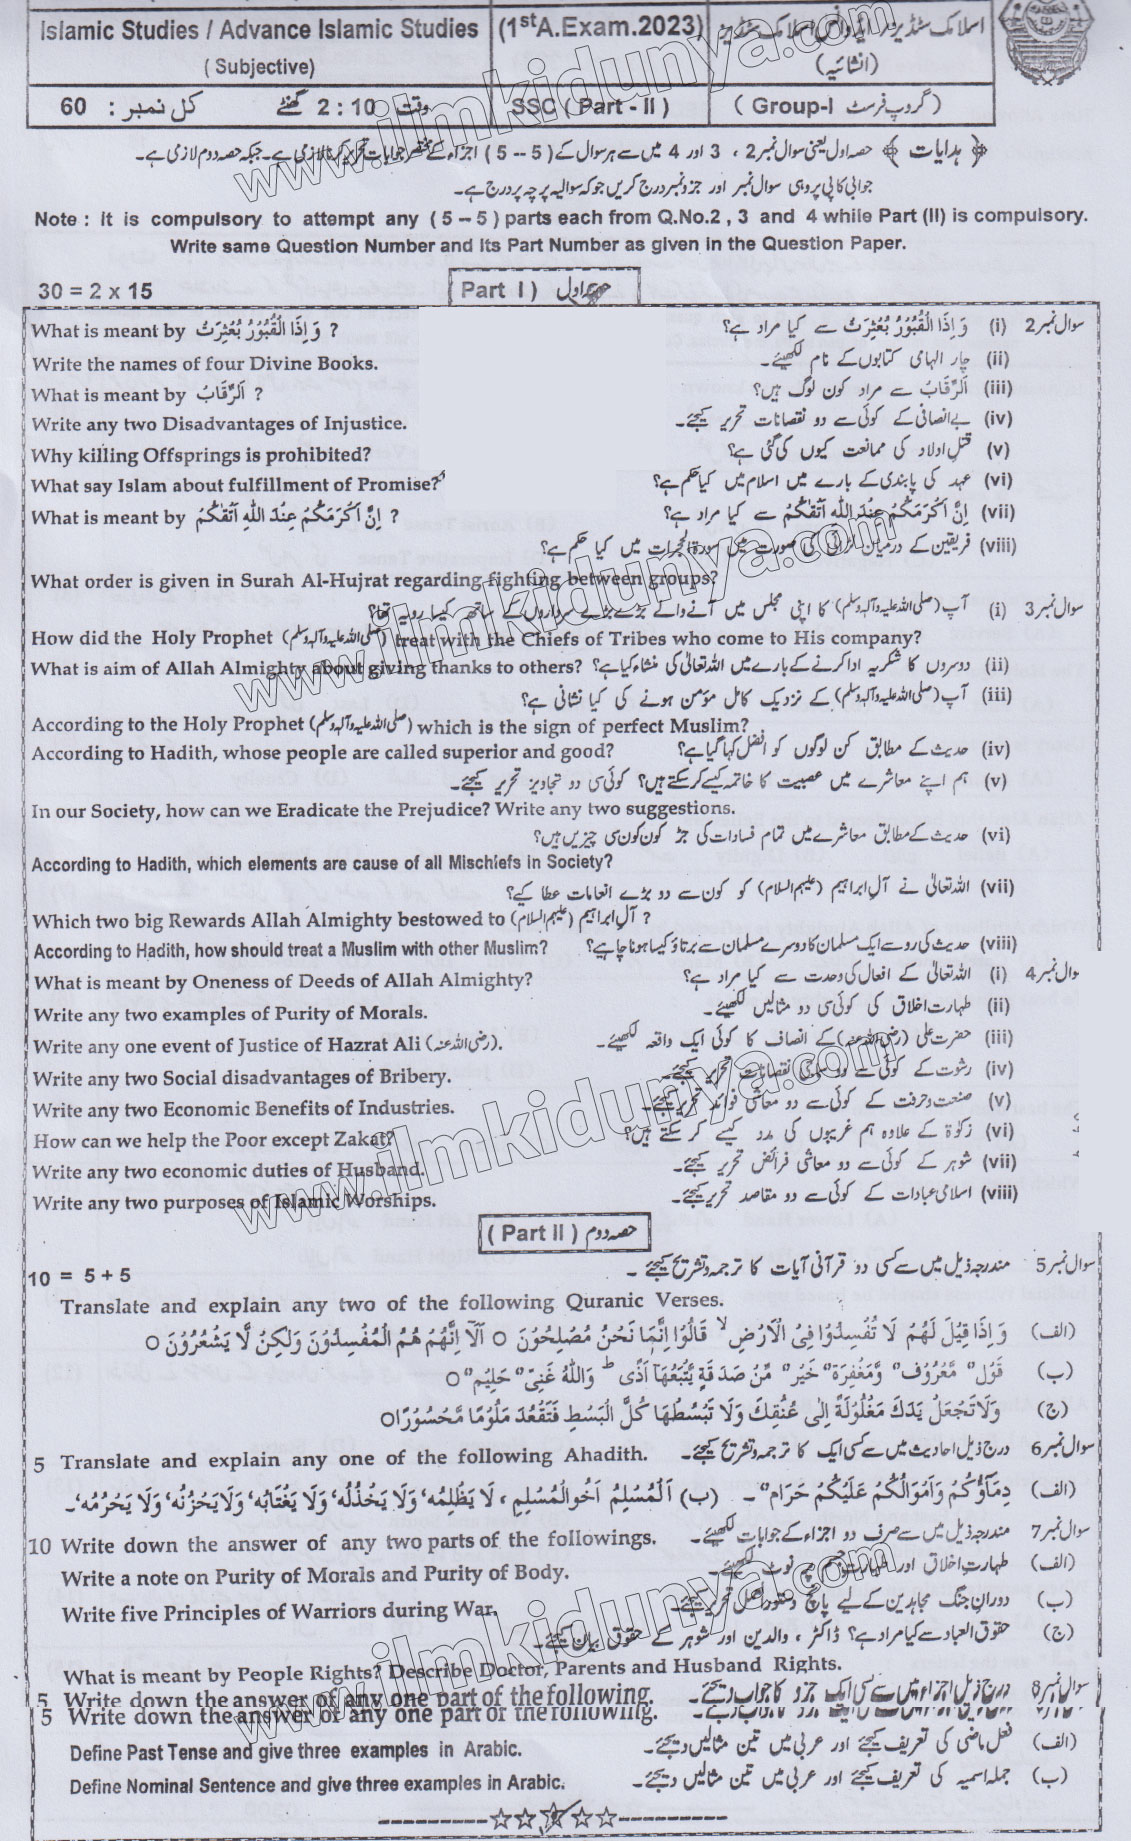 Islamic Studies / Advance Islamic Studies (1stA.Exam.2023) اسلامک سٹڈیز / ایڈوانس اسلامک سٹڈیز
(Subjective) (انشائیہ)
کل نمبر : 60 وقت 2 : 10 گھنٹے SSC ( Part - II ) (Group-I گروپ فرسٹ )
﴿ ہدایات ﴾ حصہ اول یعنی سوال نمبر 2 ، 3 اور 4 میں سے ہر سوال کے ( 5 – 5 ) اجزاء کے مختصر جوابات تحریر کرنا لازمی ہے۔ جبکہ حصہ دوم لازمی ہے۔
جوابی کاپی پر وہی سوال نمبر اور جزو نمبر درج کریں جو کہ سوالیہ پرچہ پر درج ہے۔
Note : It is compulsory to attempt any ( 5 – 5 ) parts each from Q.No.2 , 3 and 4 while Part (II) is compulsory.
Write same Question Number and Its Part Number as given in the Question Paper.
30 = 2 x 15 ( Part I ) حصہ اول
What is meant by وَ اِذَا الْقُبُوْرُ بُعْثِرَتْ ? سوال نمبر 2 (i) وَ اِذَا الْقُبُوْرُ بُعْثِرَتْ سے کیا مراد ہے؟
Write the names of four Divine Books. (ii) چار الہامی کتابوں کے نام لکھیئے۔
What is meant by اَلرِّقَابُ ? (iii) اَلرِّقَابُ سے مراد کون لوگ ہیں؟
Write any two Disadvantages of Injustice. (iv) بے انصافی کے کوئی سے دو نقصانات تحریر کیجئے۔
Why killing Offsprings is prohibited? (v) قتلِ اولاد کی ممانعت کیوں کی گئی ہے؟
What say Islam about fulfillment of Promise? (vi) عہد کی پابندی کے بارے میں اسلام میں کیا حکم ہے؟
What is meant by اِنَّ اَكْرَمَكُمْ عِنْدَ اللّٰهِ اَتْقٰكُمْ ? (vii) اِنَّ اَكْرَمَكُمْ عِنْدَ اللّٰهِ اَتْقٰكُمْ سے کیا مراد ہے؟
(viii) فریقین کے درمیان لڑائی کی صورت میں سورۃ الحجرات میں کیا حکم ہے؟
What order is given in Surah Al-Hujrat regarding fighting between groups?
سوال نمبر 3 (i) آپ (صلی اللہ علیہ وآلہ وسلم) کا اپنی مجلس میں آنے والے بڑے بڑے سرداروں کے ساتھ کیسا رویہ تھا؟
How did the Holy Prophet (صلی اللہ علیہ وآلہ وسلم) treat with the Chiefs of Tribes who come to His company?
What is aim of Allah Almighty about giving thanks to others? (ii) دوسروں کا شکریہ ادا کرنے کے بارے میں اللہ تعالیٰ کی منشاء کیا ہے؟
(iii) آپ (صلی اللہ علیہ وآلہ وسلم) کے نزدیک کامل مؤمن ہونے کی کیا نشانی ہے؟
According to the Holy Prophet (صلی اللہ علیہ وآلہ وسلم) which is the sign of perfect Muslim?
According to Hadith, whose people are called superior and good? (iv) حدیث کے مطابق کن لوگوں کو افضل کہا گیا ہے؟
(v) ہم اپنے معاشرے میں عصبیت کا خاتمہ کیسے کر سکتے ہیں؟ کوئی سی دو تجاویز تحریر کیجئے۔
In our Society, how can we Eradicate the Prejudice? Write any two suggestions.
(vi) حدیث کے مطابق معاشرے میں تمام فسادات کی جڑ کون کون سی چیزیں ہیں؟
According to Hadith, which elements are cause of all Mischiefs in Society?
(vii) اللہ تعالیٰ نے آلِ ابراہیم (علیہم السلام) کو کون سے دو بڑے انعامات عطا کیے؟
Which two big Rewards Allah Almighty bestowed to آلِ ابراہیم (علیہم السلام) ?
According to Hadith, how should treat a Muslim with other Muslim? (viii) حدیث کی رو سے ایک مسلمان کا دوسرے مسلمان سے برتاؤ کیسا ہونا چاہیے؟
What is meant by Oneness of Deeds of Allah Almighty? سوال نمبر 4 (i) اللہ تعالیٰ کے افعال کی وحدت سے کیا مراد ہے؟
Write any two examples of Purity of Morals. (ii) طہارت اخلاق کی کوئی سی دو مثالیں لکھیئے۔
Write any one event of Justice of Hazrat Ali (رضی اللہ عنہ). (iii) حضرت علی (رضی اللہ عنہ) کے انصاف کا کوئی ایک واقعہ لکھیئے۔
Write any two Social disadvantages of Bribery. (iv) رشوت کے کوئی سے دو سماجی نقصانات تحریر کیجئے۔
Write any two Economic Benefits of Industries. (v) صنعت و حرفت کے کوئی سے دو معاشی فوائد تحریر کیجئے۔
How can we help the Poor except Zakat? (vi) زکوٰۃ کے علاوہ ہم غریبوں کی مدد کیسے کر سکتے ہیں؟
Write any two economic duties of Husband. (vii) شوہر کے کوئی سے دو معاشی فرائض تحریر کیجئے۔
Write any two purposes of Islamic Worships. (viii) اسلامی عبادات کے کوئی سے دو مقاصد تحریر کیجئے۔
( Part II ) حصہ دوم
10 = 5 + 5 سوال نمبر 5 مندرجہ ذیل میں سے کسی دو قرآنی آیات کا ترجمہ و تشریح کیجئے۔
Translate and explain any two of the following Quranic Verses.
(الف) وَ اِذَا قِيْلَ لَهُمْ لَا تُفْسِدُوْا فِى الْاَرْضِ ۙ قَالُوْا اِنَّمَا نَحْنُ مُصْلِحُوْنَ ○ اَلَآ اِنَّهُمْ هُمُ الْمُفْسِدُوْنَ وَلٰكِنْ لَّا يَشْعُرُوْنَ ○
(ب) قَوْلٌ مَّعْرُوْفٌ وَّمَغْفِرَةٌ خَيْرٌ مِّنْ صَدَقَةٍ يَّتْبَعُهَآ اَذًى ؕ وَاللّٰهُ غَنِىٌّ حَلِيْمٌ ○
(ج) وَلَا تَجْعَلْ يَدَكَ مَغْلُوْلَةً اِلٰى عُنُقِكَ وَلَا تَبْسُطْهَا كُلَّ الْبَسْطِ فَتَقْعُدَ مَلُوْمًا مَّحْسُوْرًا ○
5 Translate and explain any one of the following Ahadith. سوال نمبر 6 درج ذیل احادیث میں سے کسی ایک کا ترجمہ و تشریح کیجئے۔
(الف) دِمَآؤُكُمْ وَاَمْوَالُكُمْ عَلَيْكُمْ حَرَامٌ ۔ (ب) اَلْمُسْلِمُ اَخُو الْمُسْلِمِ، لَا يَظْلِمُه' وَلَا يَخْذُلُه' وَلَا يَغْتَابُه' وَلَا يَحْزُنُه' وَلَا يَحْرُمُه'۔
10 Write down the answer of any two parts of the followings. سوال نمبر 7 مندرجہ ذیل میں سے صرف دو اجزاء کے جوابات لکھیئے۔
Write a note on Purity of Morals and Purity of Body. (الف) طہارتِ اخلاق اور طہارتِ جسم پر نوٹ لکھیئے۔
Write five Principles of Warriors during War. (ب) دورانِ جنگ مجاہدین کے لیے پانچ دستور العمل تحریر کیجئے۔
(ج) حقوق العباد سے کیا مراد ہے؟ ڈاکٹر ، والدین اور شوہر کے حقوق بیان کیجئے۔
What is meant by People Rights? Describe Doctor, Parents and Husband Rights.
5 Write down the answer of any one part of the following. سوال نمبر 8 درج ذیل اجزاء میں سے کسی ایک جزو کا جواب دیجئے۔
5 Write down the answer of any one part of the following.
Define Past Tense and give three examples in Arabic. (الف) فعل ماضی کی تعریف کیجئے اور عربی میں تین مثالیں دیجئے۔
Define Nominal Sentence and give three examples in Arabic. (ب) جملہ اسمیہ کی تعریف کیجئے اور عربی میں تین مثالیں دیجئے۔
www.ilmkidunya.com
www.ilmkidunya.com
www.ilmkidunya.com
www.ilmkidunya.com